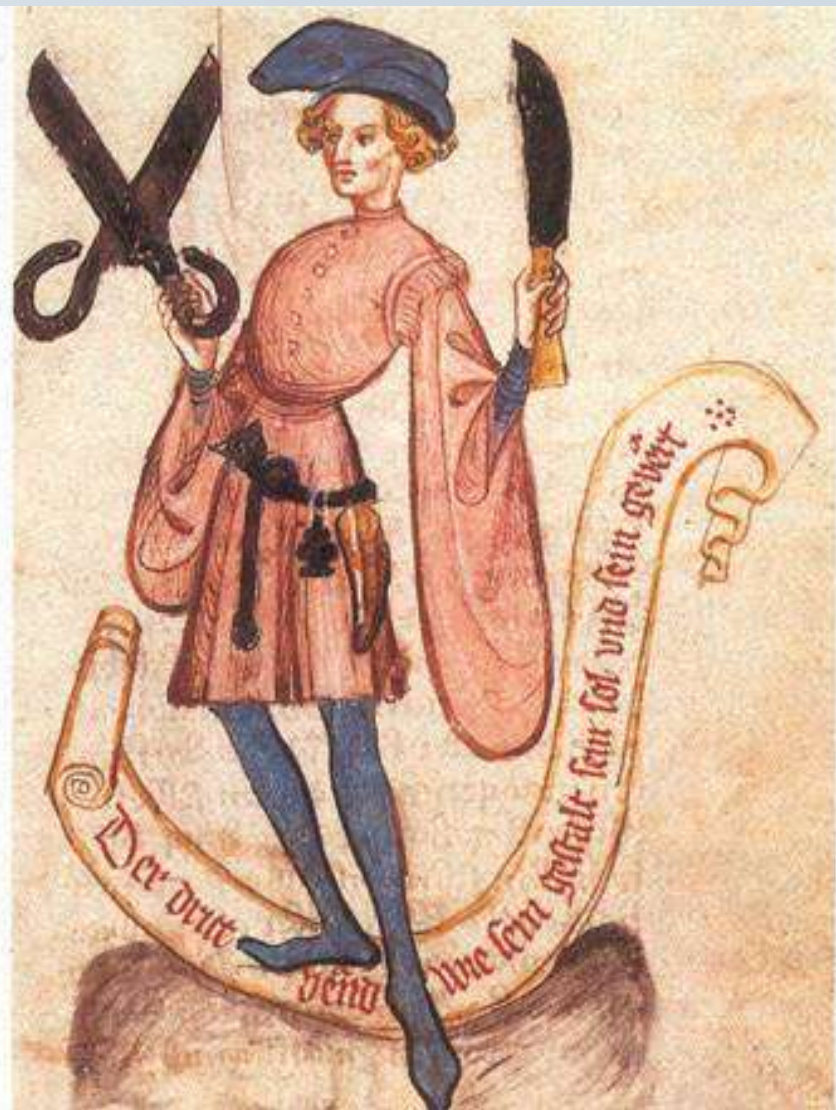 Der dritt vend wie sein gestalt sein sol vnd sein gevert